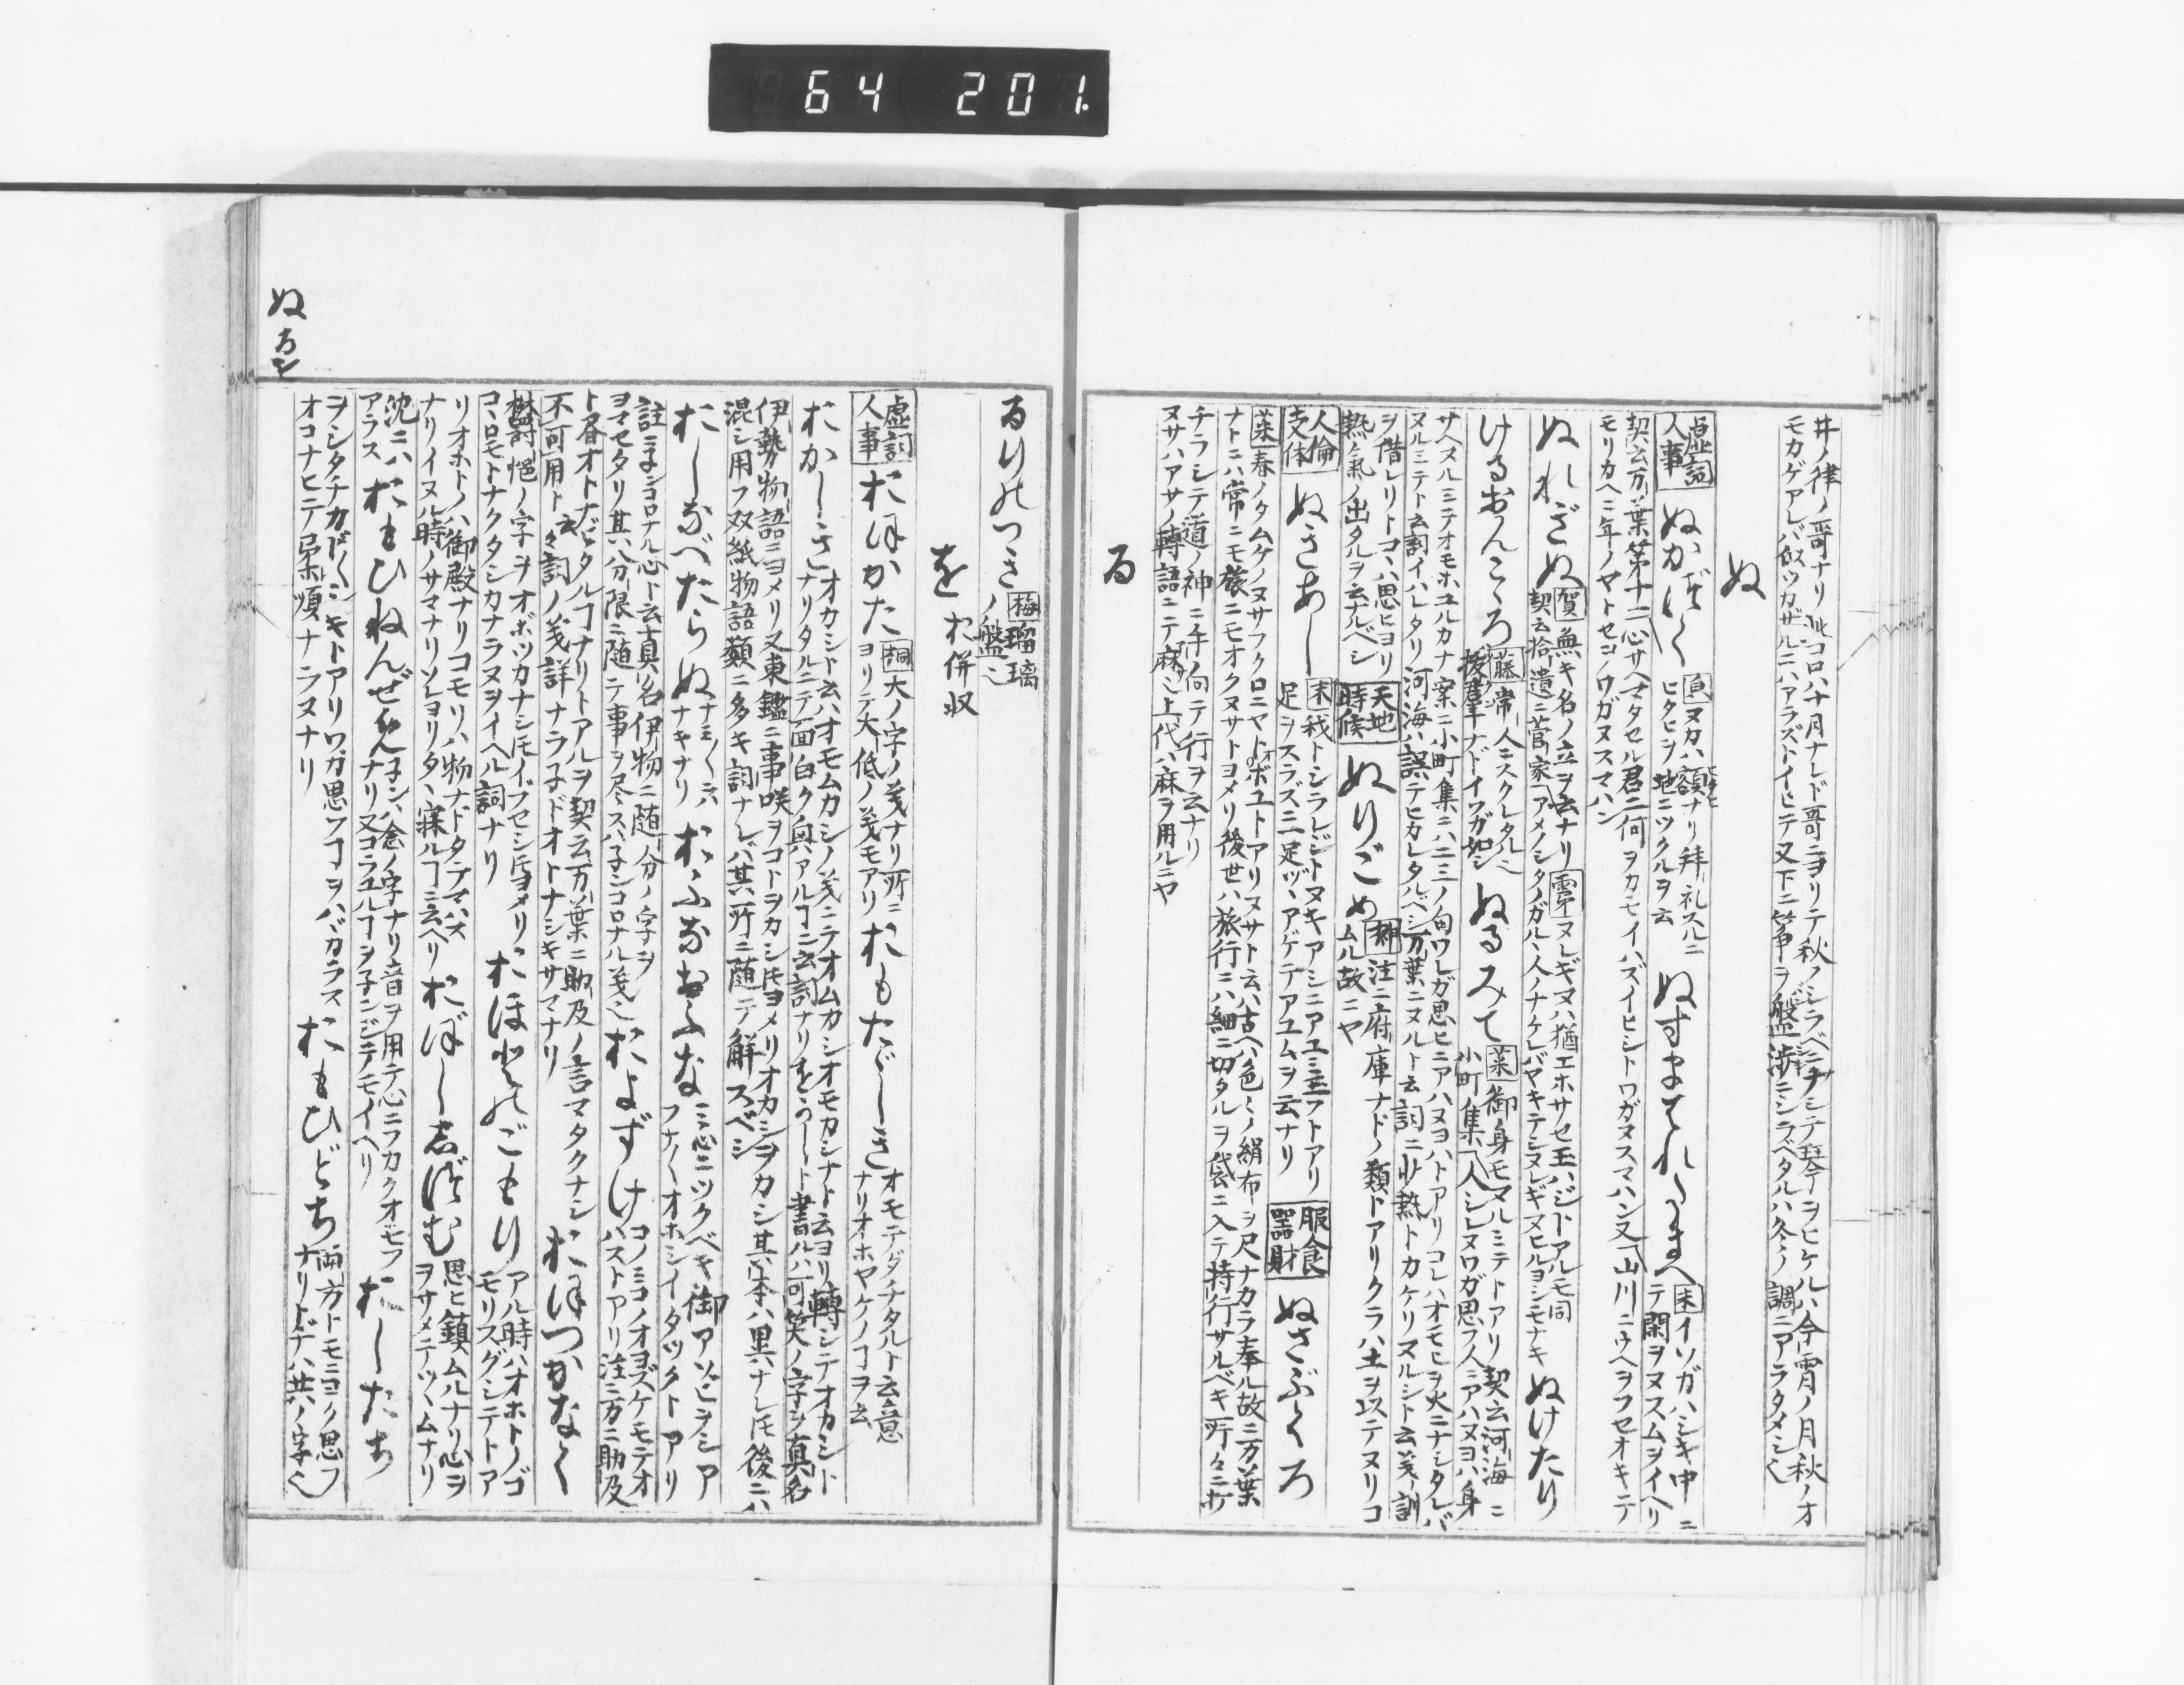 64 201.
井ノ律ノ哥ナリ此コロハ十月ナレド哥ニヨリテ秋ノシラベニナシテ琴ヲヒケルハ今宵ノ月秋ノオ
モカゲアレバ似ツカザルニハアラズトイヒテ又下ニ箏ヲ盤渉ニシラベタルハ冬ノ調ニアラタメシ也
ぬ
虚詞
人事
ぬかづく
ヌカハ額ナリ拜礼スルニ
ヒタヒヲ地ニツクルヲ云
末 イソガハシキ中ニ
テ閑ヲヌスムヲイヘリ
契云万葉第十二心サヘマタセル君ニ何ヲカモイハズイヒシトワガヌスマハン又山川ニウヘヲフセオキテ
モリカヘニ年ノヤトセコノワガヌスマハン
ぬれぎぬ
賀 無キ名ノ立ヲ云ナリ
ヌレギヌハ猶エホサセ玉ハジトアルモ同
契云拾遺ニ菅家アメノシタノガルヽ人ノナケレバヤキテシヌレギヌヒルヨシモナキ
ぬけたり
けるおんこゝろ
藤 常ノ人ニスクレタル也
抜羣ナドイワガ如シ
ぬるみて
菜 御身モヌルミテトアリ契云河海ニ
小町集人シレヌワガ思フ人ニアハヌヨハ身
サヘヌルミテオモホユルカナ案ニ小町集ニハ二三ノ句ワレガ思ヒニアハヌヨハトアリコレハオモヒヲ火ニナシタレバ
ヌルミテト云詞イハレタリ河海ハ誤テヒカレタルベシ万葉ニヌルト云詞ニ熱トカケリヌルシト云義訓
ヲ借レリトコヽハ思ヒヨリ
熱氣ノ出タルヲ云ナルベシ
天地
時候
ぬりごめ
注ニ府庫ナドノ類トアリクラハ土ヲ以テヌリコ
ムル故ニヤ
人倫
支体
ぬきあし
末 我トシラレジトヌキアシニアユミ玉フトアリ
足ヲスラズニ足ヅヽアゲテアユムヲ云ナリ
服食
器財
ぬさぶくろ
菜 春ノタムケノヌサフクロニヤトオボユトアリヌサト云ハ古ヘハ色々ノ絹布ヲ尺ナカラ奉ル故ニ万葉
ナトニハ常ニモ旅ニモオクヌサトヨメリ後世ハ旅行ニハ細ニ切タルヲ袋ニ入テ持行サルベキ所々ニテ
チラシテ道ノ神ニ手向テ行ヲ云ナリ
ヌサハアサノ轉語ニテ麻也上代ハ麻ヲ用ルニヤ
る
るりのつき
梅 瑠璃
ノ盤也
を お併収
虚詞
人事
おほかた
桐 大ノ字ノ義ナリ所ニ
ヨリテ大低ノ義モアリ
おもだゝしき
オモテダチタルト云意
ナリオホヤケノコヲ云
おかしき
オカシト云ハオモムカシノ義ニテオムカシオモカシナト云ヨリ轉シテオカシト
ナリタルニテ面白ク興アルコニ云詞ナリをかしト書ルハ可笑ノ字ヲ真名
伊勢物語ニヨメリ又東鑑ニ事咲ヲコトヲカシトモヨメリオカシヲカシ其本ハ異ナレトモ後ニハ
混シ用フ双紙物語類ニ多キ詞ナレバ其所ニ随テ解スベシ
おしなべたらぬ
ナミ〱ニハ
ナキナリ
おふなおふな
ミ心ニツクベキ御アソビヲシア
フナ〱オホシイタツクトアリ
註ニネンコロナル心ト云真名伊物ニ随分ノ字ヲ
ヨマセタリ其ハ分限ニ随テ事ヲ尽スハネンコロナル義也
およずけ
コノミコノオヨズケモテオ
ハストアリ注ニ万ニ助及
ト昏オトナビタルコナリトアルヲ契云万葉ニ助及ノ言マタクナシ
不可用ト云々詞ノ義詳ナラネドオトナシキサマナリ
おぼつかなく
欝悒ノ字ヲオボツカナシトモイブセシトモヨメリ
コヽロモトナクタシカナラヌヲイヘル詞ナリ
おほとのごもり
アル時ハオホトノゴ
モリスグシテトア
リオホトノハ御殿ナリコモリハ物ナドタテマハス
ナリイヌル時ノサマナリソレヨリタヽ寐ルコニ云ヘリ
おぼししづむ
思ヒ鎮ムルナリ心ヲ
ヲサメテツヽムナリ
沈ニハ
アラス
おもひねんぜ
ネンハ念ノ字ナリ音ヲ用テ心ニフカクオモフ
ナリ又コラユルコヲネンジテモイヘリ
おしたち
ヲシタチカド〱シキトアリワガ思フコヲハバカラス
オコナヒニテ柔順ナラヌナリ
おもひどち
両方トモニヨク思フ
ナリドチハ共ノ字也
ぬ るを